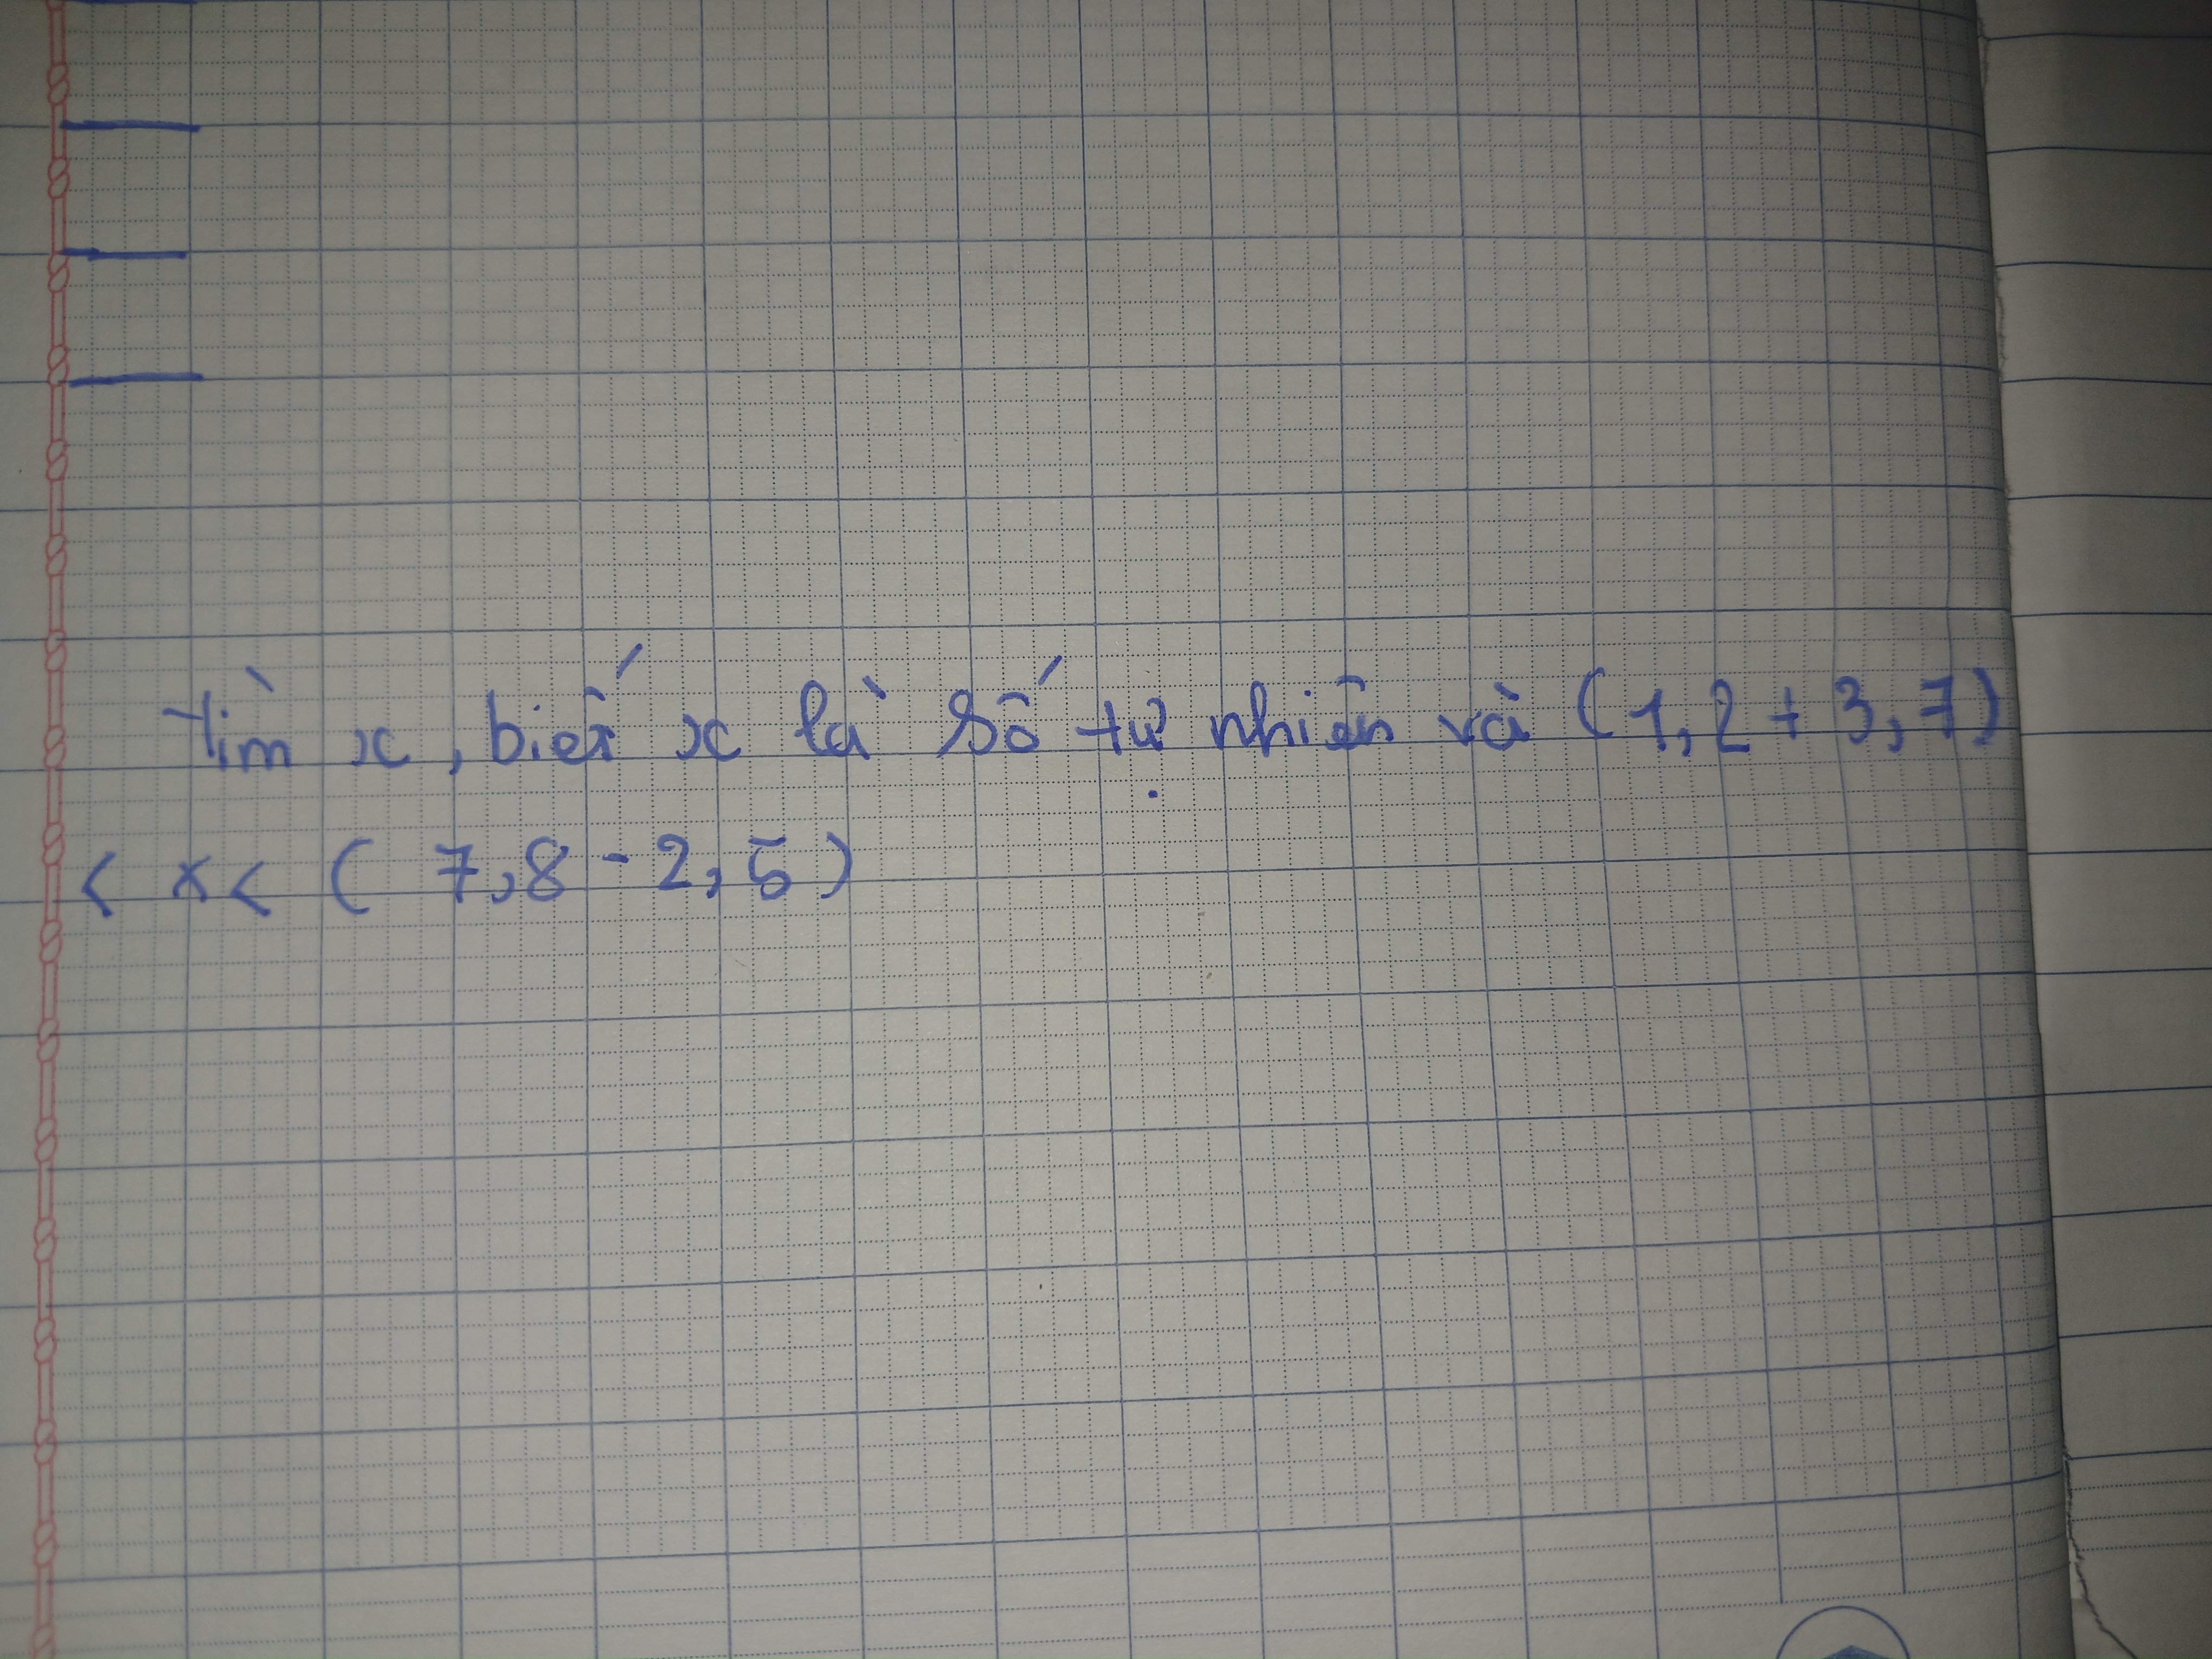 Tìm x, biết x là số tự nhiên và (1,2 + 3,7)
< x < ( 7,8 - 2,5)